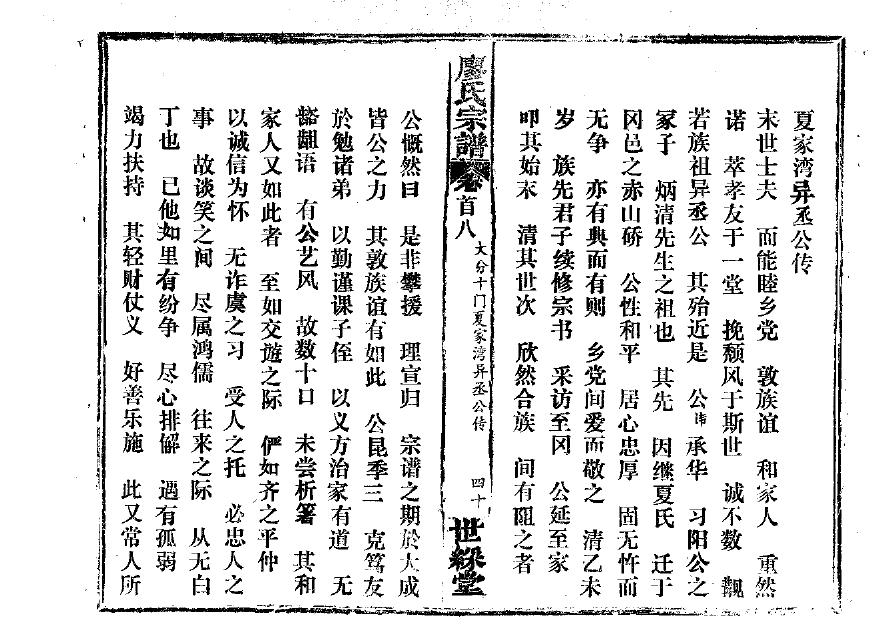 夏家湾异丞公传
末世士夫 而能睦乡党 敦族谊 和家人 重然
诺 萃孝友于一堂 挽颓风于斯世 诚不数 觏
若族祖异丞公 其殆近是 公讳承华 习阳公之
冢子 炳清先生之祖也 其先 因继夏氏 迁于
冈邑之赤山硚 公性和平 居心忠厚 固无忤而
无争 亦有典而有则 乡党间爱而敬之 清乙未
岁 族先君子续修宗书 采访至冈 公延至家
叩其始末 清其世次 欣然合族 间有阻之者
廖氏宗譜 卷首八 大分十门夏家湾异丞公传 四十 世綵堂
公慨然曰 是非攀援 理宣归 宗谱之期於大成
皆公之力 其敦族谊有如此 公昆季三 克笃友
於勉诸弟 以勤谨课子侄 以义方治家有道 无
豁龃语 有公艺风 故数十口 未尝析箸 其和
家人又如此者 至如交遊之际 俨如齐之平仲
以诚信为怀 无诈虞之习 受人之托 必忠人之
事 故谈笑之间 尽属鸿儒 往来之际 从无白
丁也 已他如里有纷争 尽心排解 遇有孤弱
竭力扶持 其轻财仗义 好善乐施 此又常人所